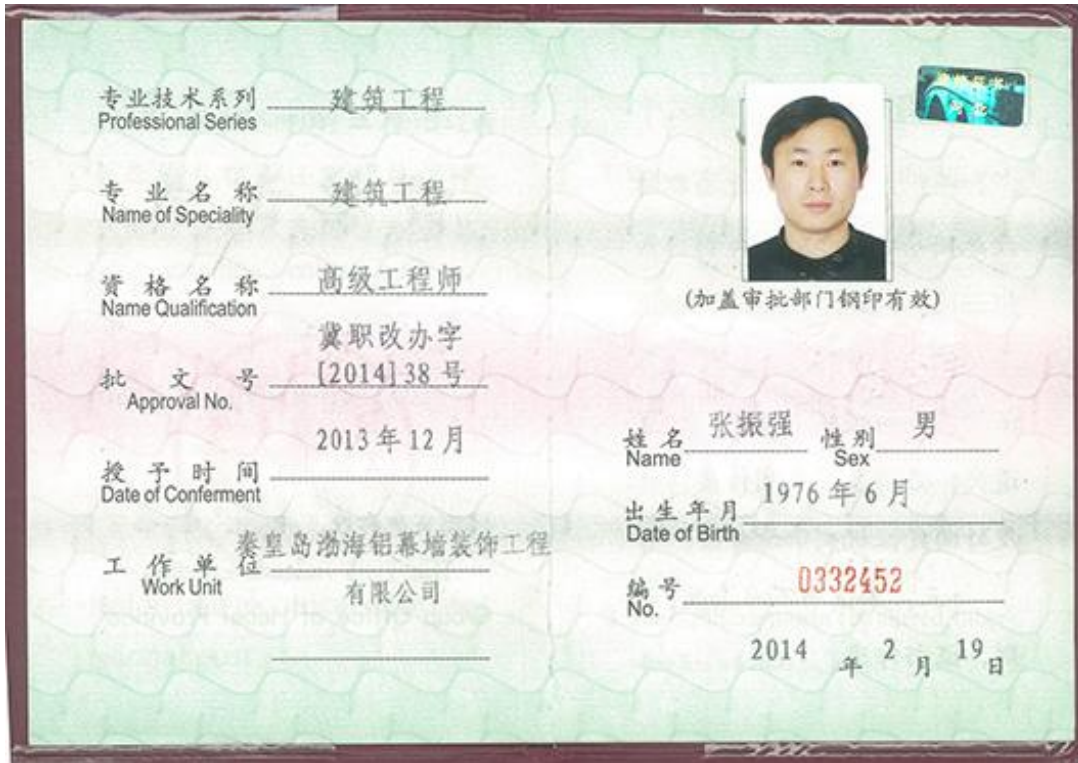 专业技术系列 建筑工程
Professional Series
专业名称 建筑工程
Name of Speciality
资格名称 高级工程师
Name Qualification
冀职改办字
批文号 [2014]38号
Approval No.
2013年12月
授予时间
Date of Conferment
秦皇岛渤海铝幕墙装饰工程
工作单位
Work Unit 有限公司
(加盖审批部门钢印有效)
姓名 张振强 性别 男
Name Sex
1976年6月
出生年月
Date of Birth
编号 0332452
No.
2014年2月19日